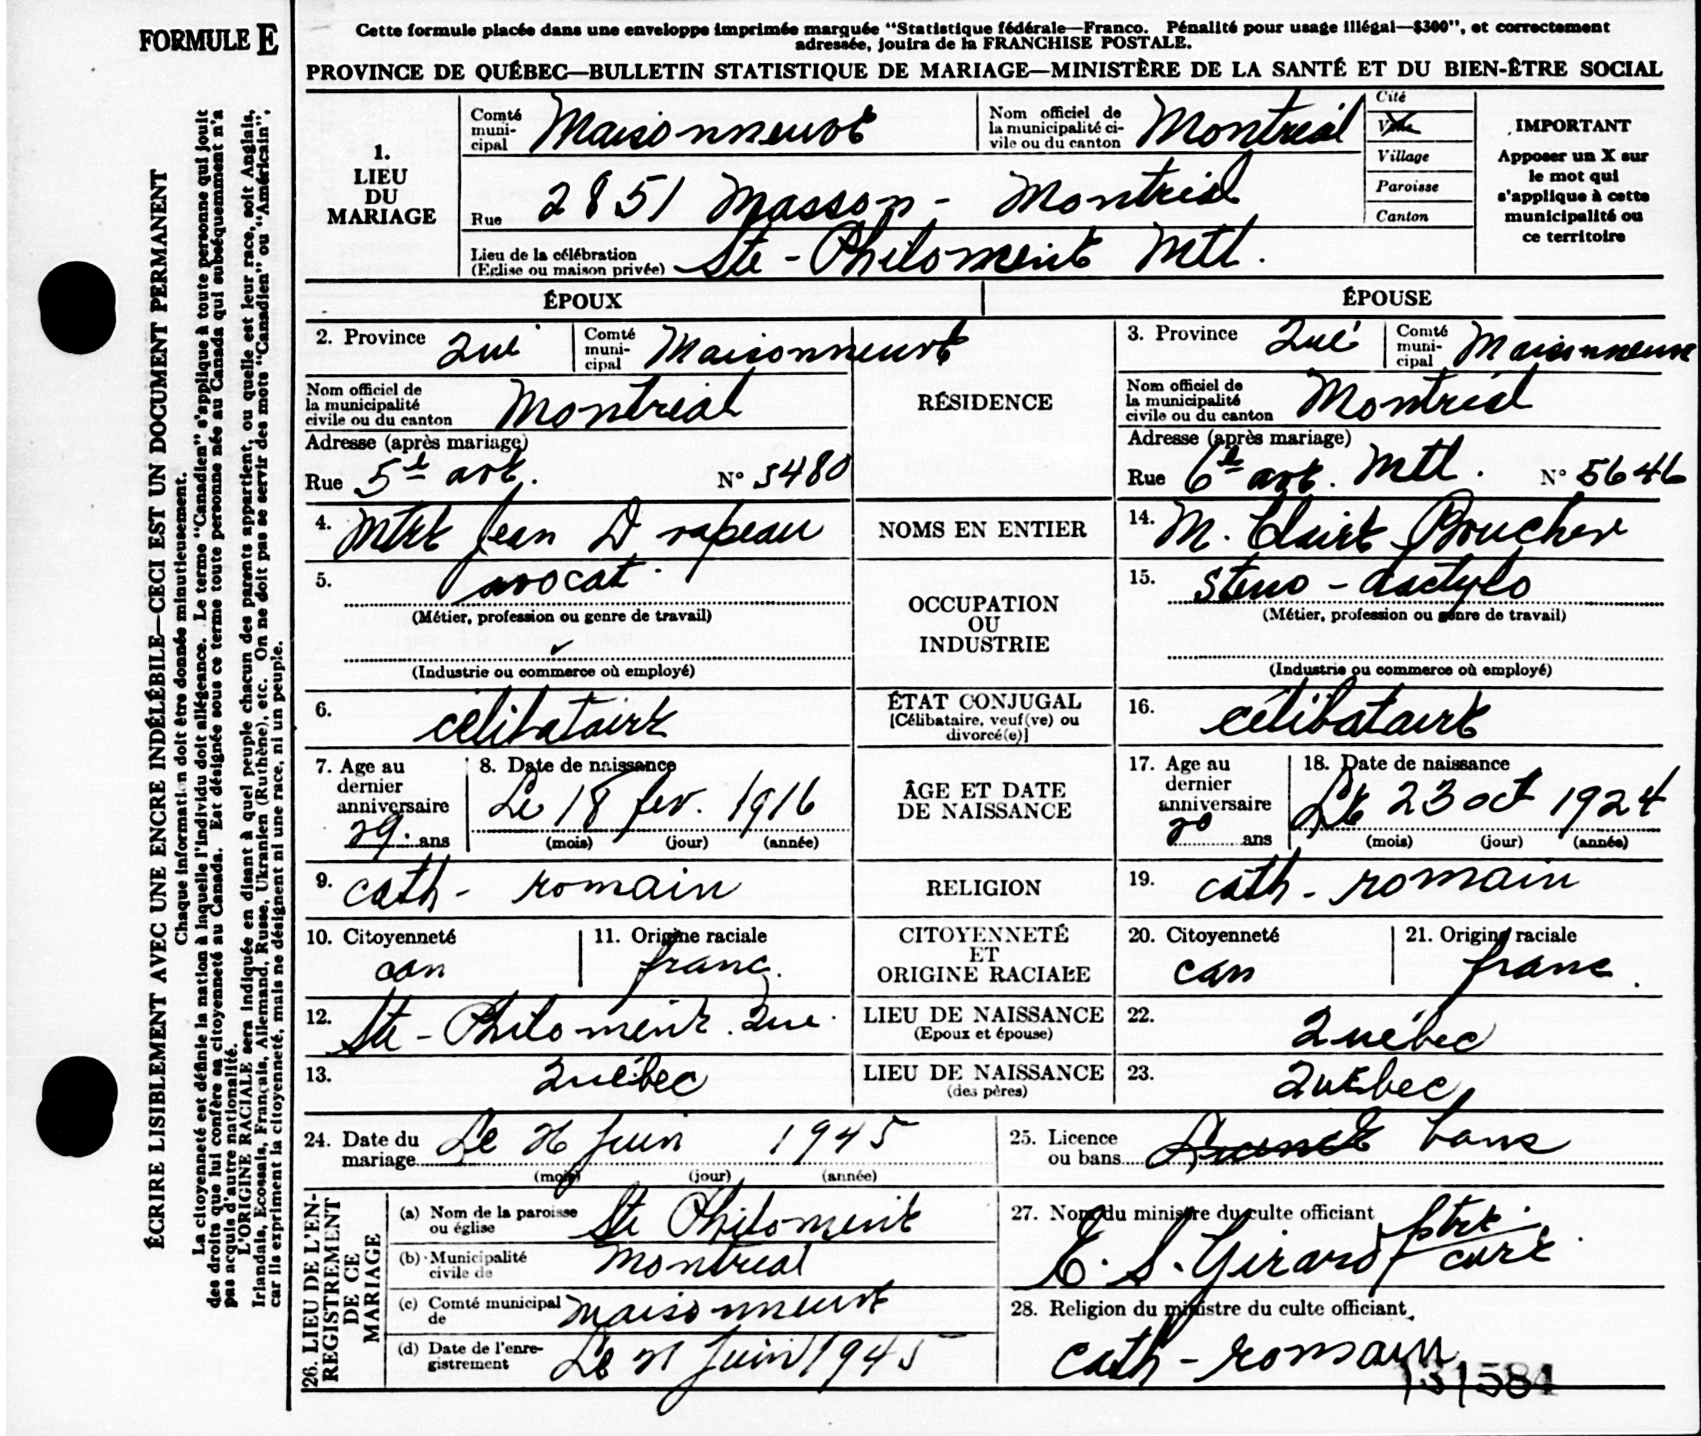 FORMULE E
Cette formule placée dans une enveloppe imprimée marquée "Statistique fédérale—Franco. Pénalité pour usage illégal—$300", et correctement
adressée, jouira de la FRANCHISE POSTALE.
PROVINCE DE QUÉBEC—BULLETIN STATISTIQUE DE MARIAGE—MINISTÈRE DE LA SANTÉ ET DU BIEN-ÊTRE SOCIAL
ÉCRIRE LISIBLEMENT AVEC UNE ENCRE INDÉLÉBILE—CECI EST UN DOCUMENT PERMANENT
Chaque information doit être donnée minutieusement.
La citoyenneté est définie la nation à laquelle l'individu doit allégeance. Le terme "Canadien" s'applique à toute personne qui jouit
des droits que lui confère sa citoyenneté au Canada. Est désignée sous ce terme toute personne née au Canada qui subséquemment n'a
pas acquis d'autre nationalité.
L'ORIGINE RACIALE sera indiquée en disant à quel peuple chacun des parents appartient, ou quelle est leur race, soit Anglais,
Irlandais, Ecossais, Français, Allemand, Russe, Ukranien (Ruthène), etc. On ne doit pas se servir des mots "Canadien" ou "Américain",
car ils expriment la citoyenneté, mais ne désignent ni une race, ni un peuple.
1.
LIEU
DU
MARIAGE
Comté municipal Maisonneuve
Nom officiel de la municipalité civile ou du canton Montréal
Cité
Ville
Village
Paroisse
Canton
IMPORTANT
Apposer un X sur
le mot qui
s'applique à cette
municipalité ou
ce territoire
Rue 2851 Masson - Montréal
Lieu de la célébration
(Eglise ou maison privée) Ste-Philomène Mtl.
ÉPOUX
ÉPOUSE
2. Province Qué Comté municipal Maisonneuve
RÉSIDENCE
3. Province Qué Comté municipal Maisonneuve
Nom officiel de la municipalité civile ou du canton Montréal
Nom officiel de la municipalité civile ou du canton Montréal
Adresse (après mariage)
Rue 5e ave. N° 5480
Adresse (après mariage)
Rue 6e ave. Mtl. N° 5646
4. Mtre Jean Drapeau
NOMS EN ENTIER
14. M. Claire Boucher
5. avocat
(Métier, profession ou genre de travail)
(Industrie ou commerce où employé)
OCCUPATION
OU
INDUSTRIE
15. sténo-dactylo
(Métier, profession ou genre de travail)
(Industrie ou commerce où employé)
6. célibataire
ÉTAT CONJUGAL
[Célibataire, veuf(ve) ou
divorcé(e)]
16. célibataire
7. Age au
dernier
anniversaire
29 ans
8. Date de naissance
Le 18 fev. 1916
(mois) (jour) (année)
ÂGE ET DATE
DE NAISSANCE
17. Age au
dernier
anniversaire
20 ans
18. Date de naissance
Le 23 oct 1924
(mois) (jour) (année)
9. cath - romain
RELIGION
19. cath - romain
10. Citoyenneté
can
11. Origine raciale
franc.
CITOYENNETÉ
ET
ORIGINE RACIALE
20. Citoyenneté
can
21. Origine raciale
franc.
12. Ste-Philomène. Que.
LIEU DE NAISSANCE
(Epoux et épouse)
22. Québec
13. Québec
LIEU DE NAISSANCE
(des pères)
23. Québec
24. Date du
mariage Le 26 Juin 1945
(mois) (jour) (année)
25. Licence
ou bans bans
26. LIEU DE L'EN-
REGISTREMENT
DE CE
MARIAGE
(a) Nom de la paroisse
ou église Ste Philomène
(b) Municipalité
civile de Montréal
(c) Comté municipal
de Maisonneuve
(d) Date de l'enre-
gistrement Le 26 Juin 1945
27. Nom du ministre du culte officiant
E. S. Girard ptre curé
28. Religion du ministre du culte officiant
cath - romain
131584